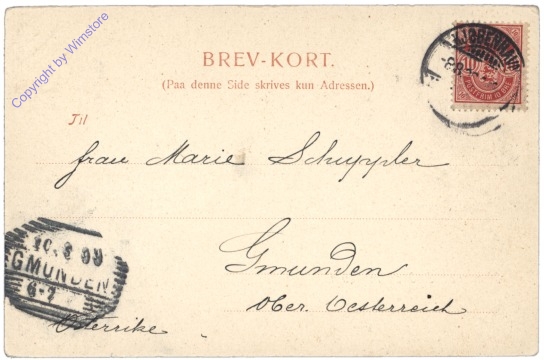 Copyright by Wimstore
KJØBENHAVN
BREV-KORT.
(Paa denne Side skrives kun Adressen.)
Til
Frau Marie Schuppler
Gmunden
Ober. Oesterreich
Österrike
10.8 99
GMUNDEN
6-7